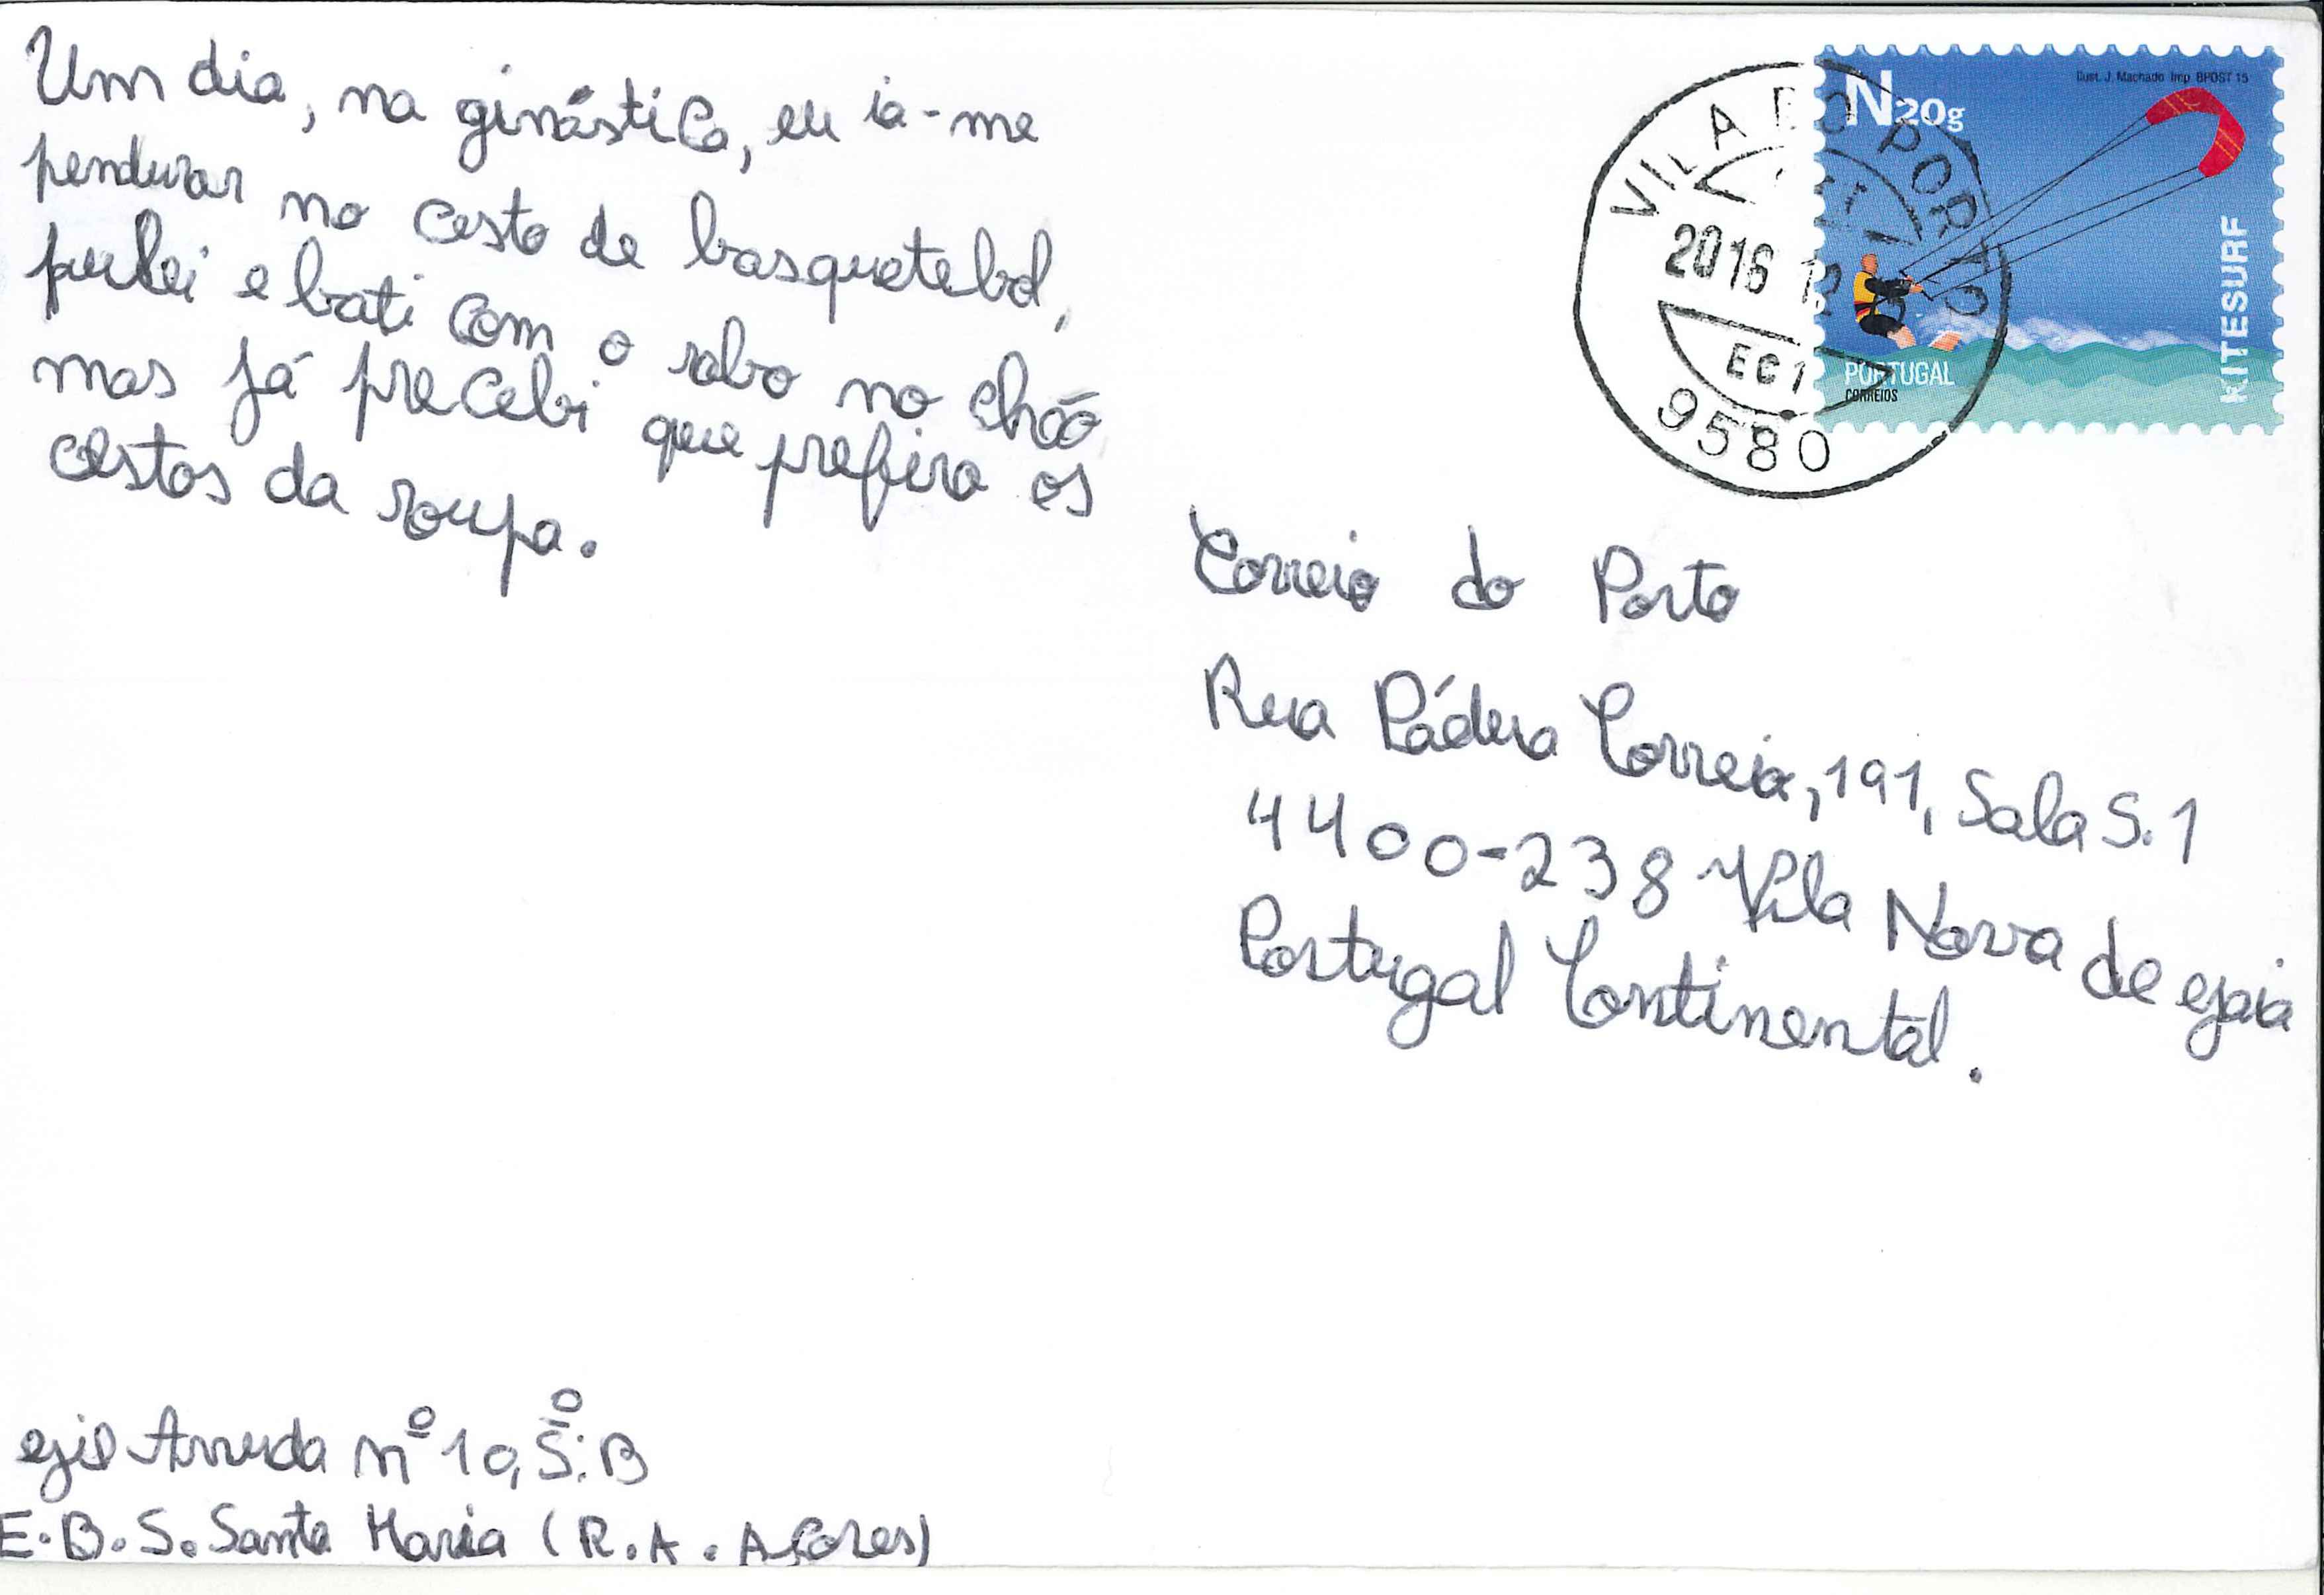 Um dia, na ginástica, eu ia-me
pendurar no cesto de basquetebol,
pulei e bati com o rabo no chão
mas já precebi que prefiro os
cestos da roupa.
VILA DO PORTO
2016 12
EC1
9580
Ilust. J. Machado Imp. BPOST 15
N20g
KITESURF
PORTUGAL
CORREIOS
Correio do Porto
Rua Pádua Correia, 191, Sala S.1
4400-238 Vila Nova de Gaia
Portugal Continental.
Gil Arruda nº 10, 5º B
E.B.S. Santa Maria (R.A. Açores)